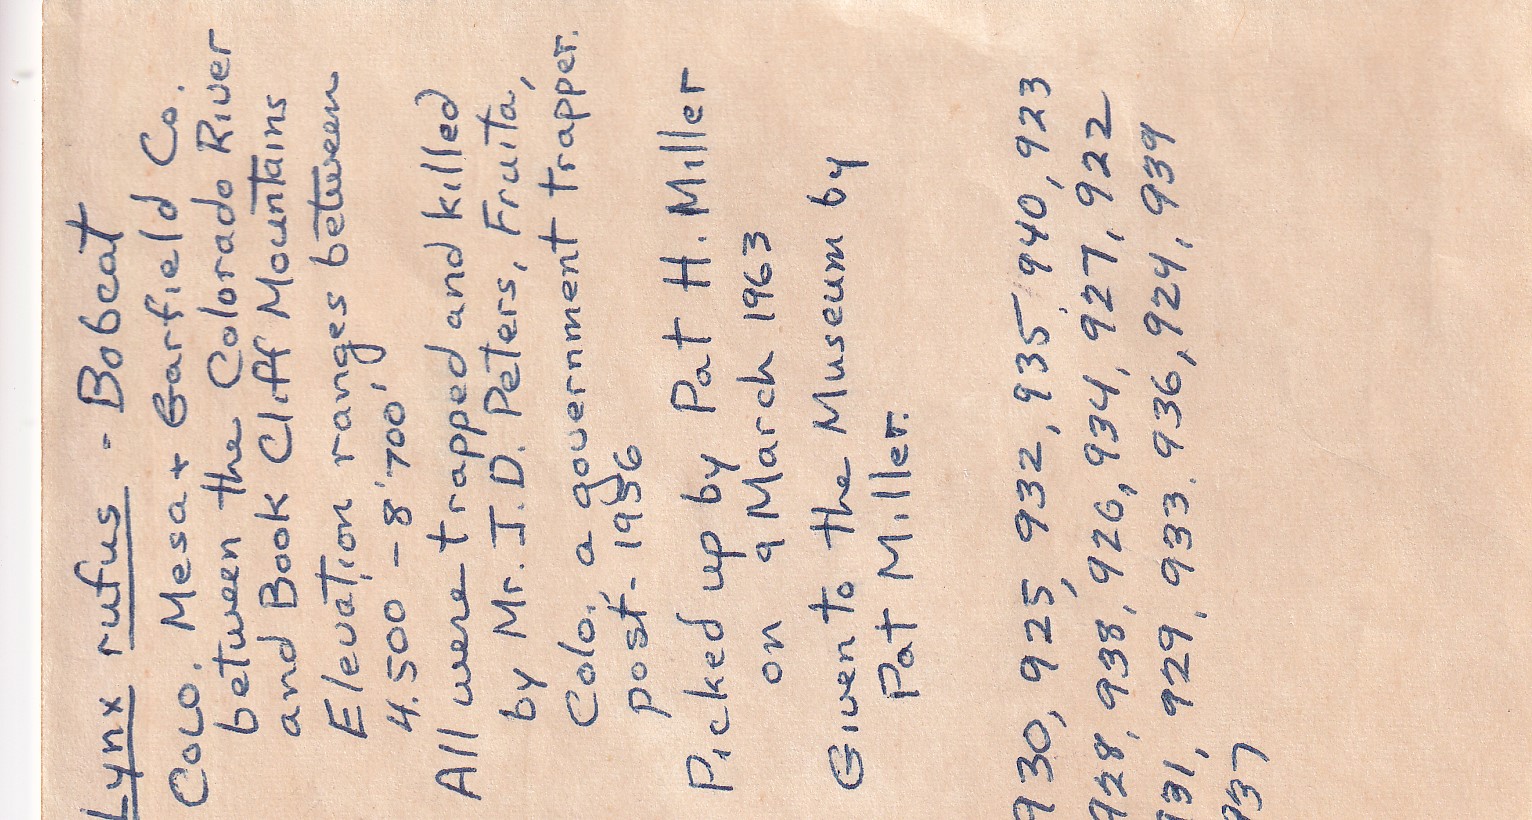 Lynx rufus - Bobcat
COLO. Mesa + Garfield Co.
between the Colorado River
and Book Cliff Mountains
Elevation ranges between
4,500 - 8'700'
All were trapped and killed
by Mr. J.D. Peters, Fruita,
Colo, a government trapper.
post- 1956
Picked up by Pat H. Miller
on 9 March 1963
Given to the Museum by
Pat Miller.
930, 925, 932, 935, 940, 923
928, 938, 926, 934, 927, 922
931, 929, 933, 936, 924, 939
937